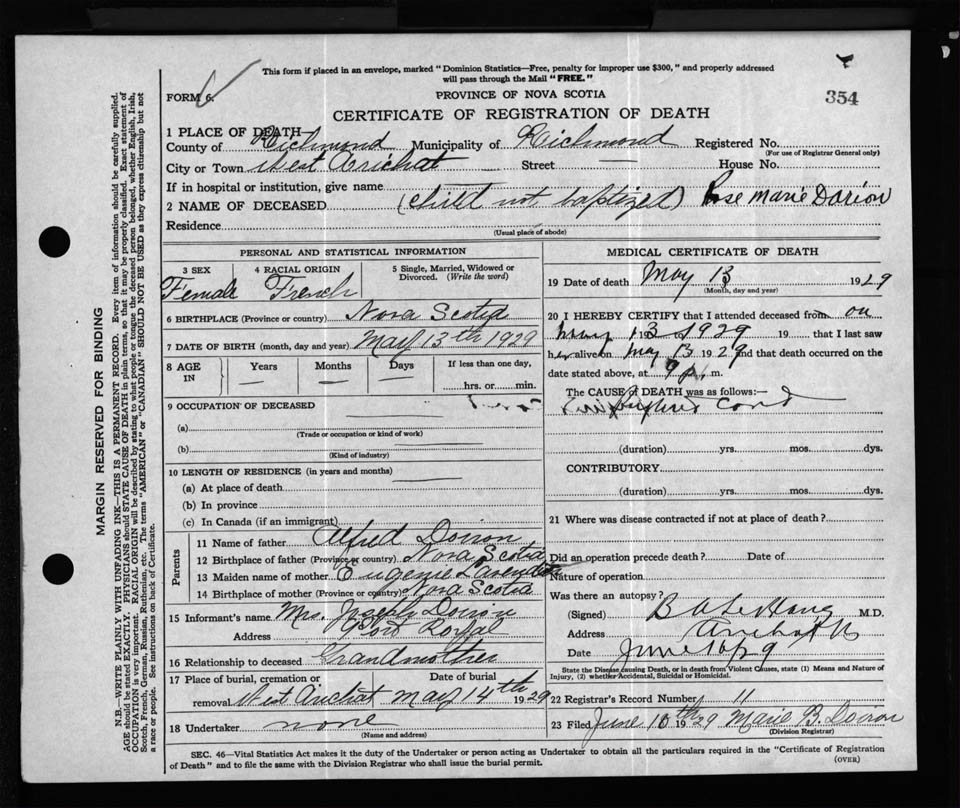 This form if placed in an envelope, marked "Dominion Statistics—Free, penalty for improper use $300," and properly addressed
will pass through the Mail "FREE."
FORM 6.
PROVINCE OF NOVA SCOTIA
354
CERTIFICATE OF REGISTRATION OF DEATH
1 PLACE OF DEATH—
County of Richmond Municipality of Richmond Registered No.
(For use of Registrar General only)
City or Town West Arichat Street — House No.
If in hospital or institution, give name
2 NAME OF DECEASED (child not baptized) Rose Marie Dorion
Residence
(Usual place of abode)
PERSONAL AND STATISTICAL INFORMATION
3 SEX 4 RACIAL ORIGIN 5 Single, Married, Widowed or Divorced. (Write the word)
Female French
6 BIRTHPLACE (Province or country) Nova Scotia
7 DATE OF BIRTH (month, day and year) May 13th 1929
8 AGE IN Years Months Days If less than one day,
— — — hrs. or min.
9 OCCUPATION OF DECEASED
(a)
(Trade or occupation or kind of work)
(b)
(Kind of industry)
10 LENGTH OF RESIDENCE (in years and months)
(a) At place of death
(b) In province
(c) In Canada (if an immigrant)
Parents
11 Name of father Alfred Doiron
12 Birthplace of father (Province or country) Nova Scotia
13 Maiden name of mother Eugenie
14 Birthplace of mother (Province or country) Nova Scotia
15 Informant's name Mrs. Doiron
Address Port Royal
16 Relationship to deceased Grandmother
17 Place of burial, cremation or removal Date of burial
West Arichat May 14th 1929
18 Undertaker none
(Name and address)
MEDICAL CERTIFICATE OF DEATH
19 Date of death May 13 1929
(Month, day and year)
20 I HEREBY CERTIFY that I attended deceased from on
May 13 1929 19 that I last saw
h alive on May 13 1929 and that death occurred on the
date stated above, at 9 p. m.
The CAUSE of DEATH was as follows:—
cord
(duration) yrs. mos. dys.
CONTRIBUTORY
(duration) yrs. mos. dys.
21 Where was disease contracted if not at place of death?
Did an operation precede death? Date of
Nature of operation
Was there an autopsy?
(Signed) M.D.
Address Arichat
Date June
State the Disease causing Death, or in death from Violent Causes, state (1) Means and Nature of
Injury, (2) whether Accidental, Suicidal or Homicidal.
22 Registrar's Record Number 11
23 Filed June 10th 1929 Marie B. Doiron
(Division Registrar)
SEC. 46—Vital Statistics Act makes it the duty of the Undertaker or person acting as Undertaker to obtain all the particulars required in the "Certificate of Registration
of Death" and to file the same with the Division Registrar who shall issue the burial permit.
(OVER)
MARGIN RESERVED FOR BINDING
N.B.—WRITE PLAINLY WITH UNFADING INK—THIS IS A PERMANENT RECORD. Every item of information should be carefully supplied.
AGE should be stated EXACTLY. PHYSICIANS should STATE CAUSE OF DEATH in plain terms, so that it may be properly classified. Exact statement of
OCCUPATION is very important. RACIAL ORIGIN will be described by stating to what people or tongue the deceased person belonged, whether English, Irish,
Scotch, French, German, Russian, Ruthenian, etc. The terms "AMERICAN" or "CANADIAN" SHOULD NOT BE USED as they express citizenship but not
a race or people. See instructions on back of Certificate.